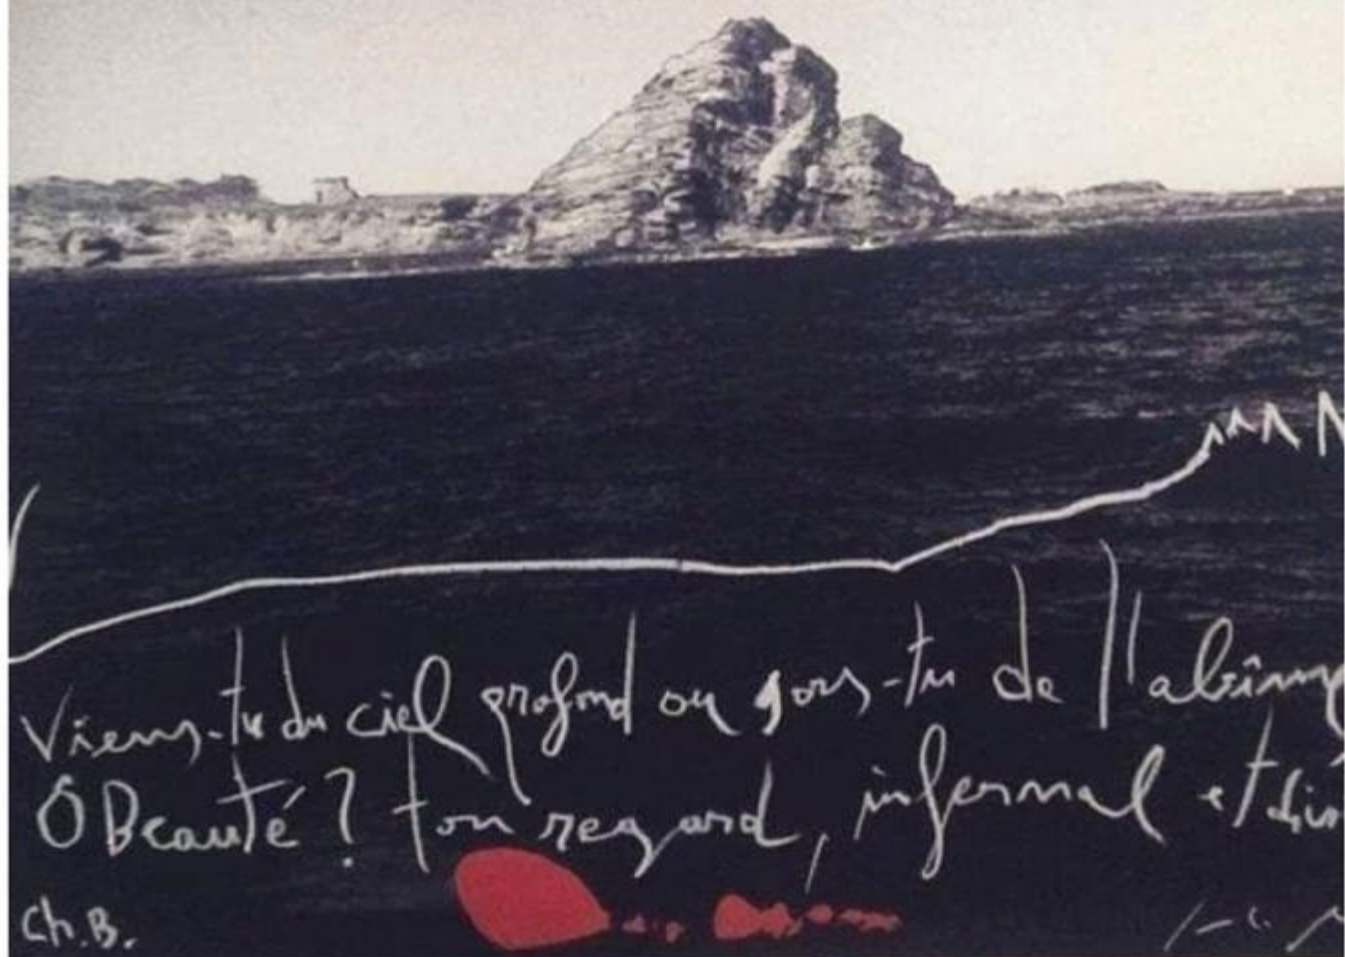 Viens-tu du ciel profond ou sors-tu de l'abîme
Ô Beauté ? ton regard, infernal et divin
Ch. B.